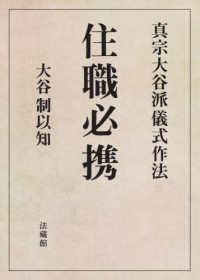 真宗大谷派儀式作法
住職必携
大谷制以知
法蔵館